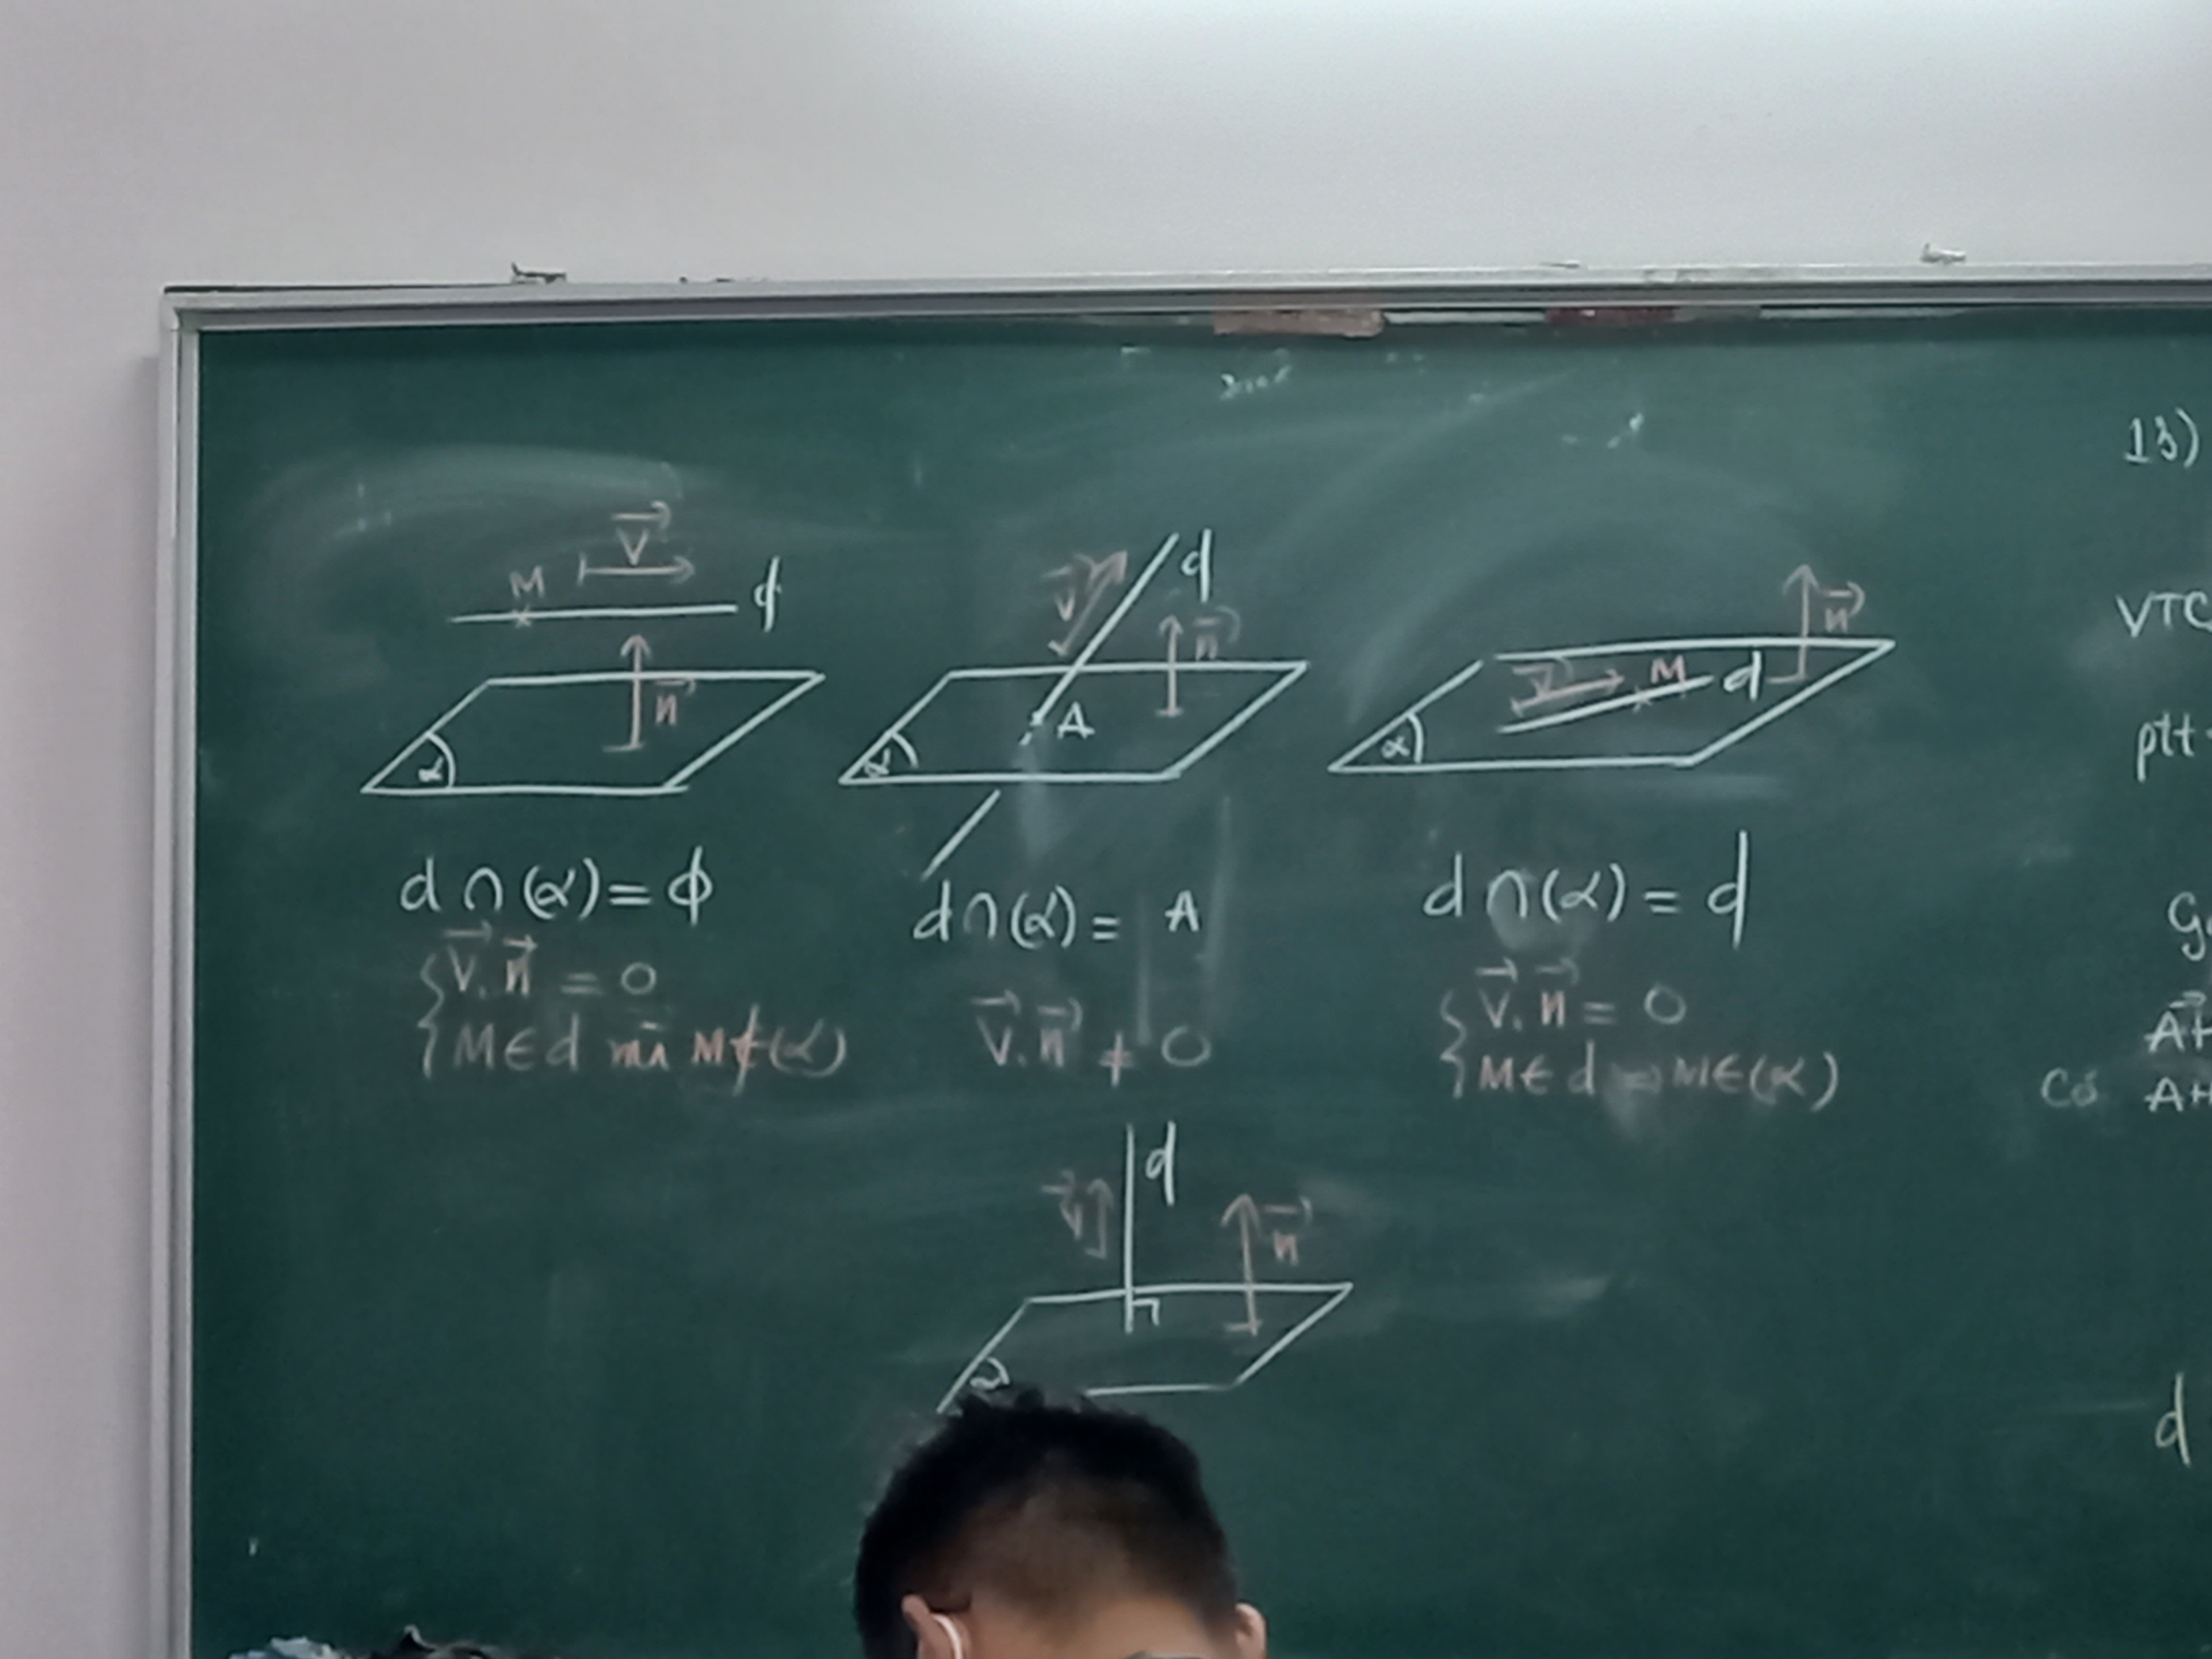 V⃗
M
d
n⃗
α
d ∩ (α) = ϕ
{ V⃗.n⃗ = 0
M ∈ d mà M ∉ (α)
V⃗
d
n⃗
A
α
d ∩ (α) = A
V⃗.n⃗ ≠ 0
n⃗
V⃗
M
d
α
d ∩ (α) = d
{ V⃗.n⃗ = 0
M ∈ d ⇒ M ∈ (α)
d
V⃗
n⃗
α
13)
VTC
ptt
Có AH
d